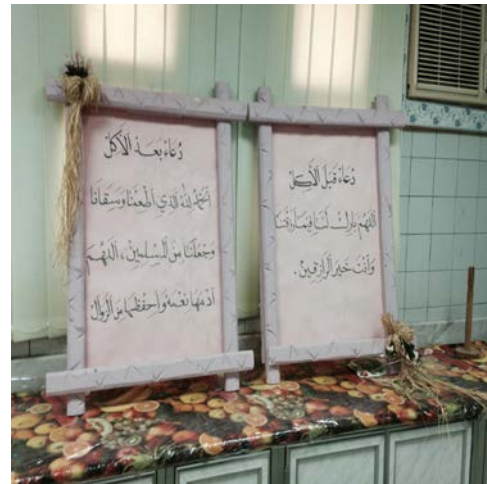 دُعَاءُ قَبلَ الْأَكلِ
اللَّهُمَ بَارِكْ لَنَا فِيمَا رَزَقْتَنَا
وَأَنْتَ خَيرُ الرَّازِقِينْ .
دُعَاءُ بَعَدْ الْأَكلْ
اَلحَمْدُ لِلَّهِ الَّذِي أَطْعَمَنَا وَسَقَانَا
وَجَعَلَنَا مِنَ المُسلمِينْ ، اللَّهُمَّ
أَدِمْهَا نِعْمَة وَاحْفَظْهَا مِنَ الزَّوَالْ